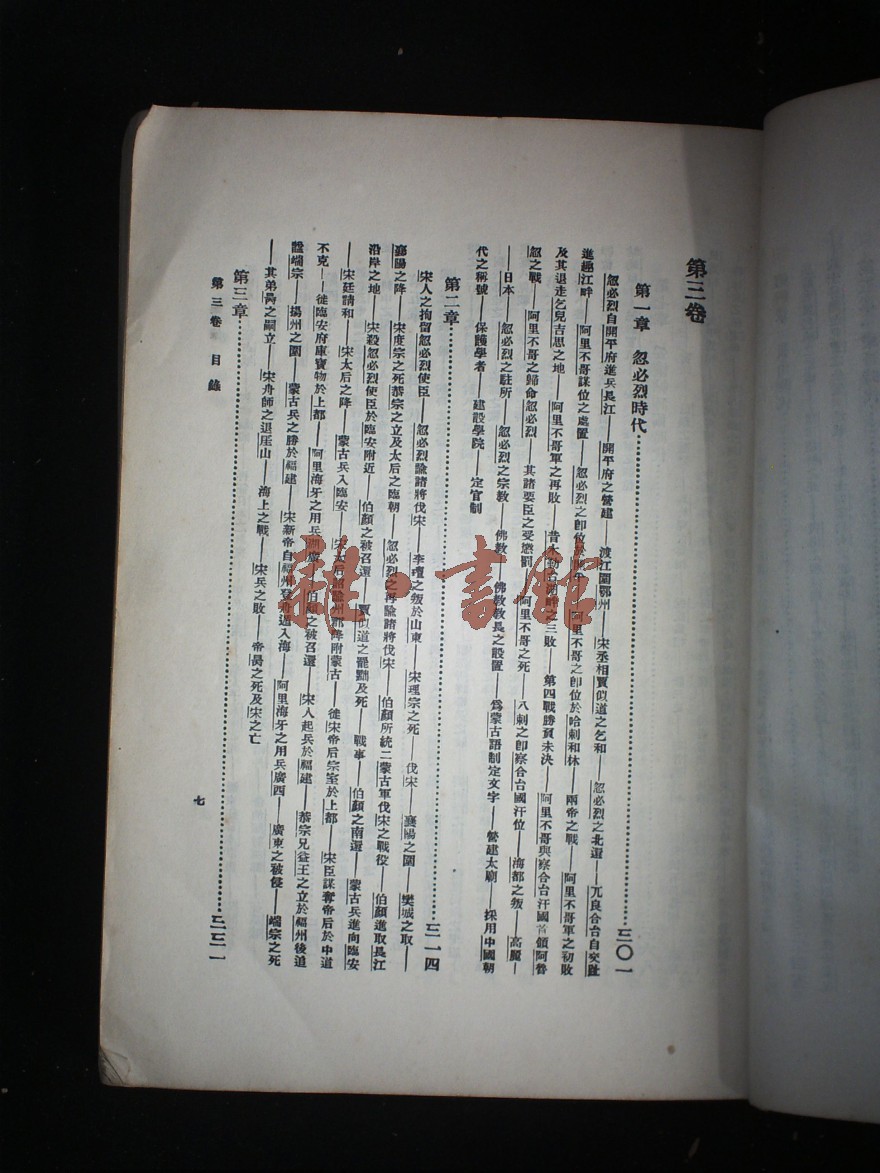 第三卷
第一章 忽必烈時代……三〇一
忽必烈自開平府進兵長江——開平府之營建——渡江圍鄂州——宋丞相賈似道之乞和——忽必烈之北還——兀良合台自交趾
進趨江畔——阿里不哥謀位之處置——忽必烈之卽位於開平——阿里不哥之卽位於哈剌和林——兩帝之戰——阿里不哥軍之初敗
及其退走乞兒吉思之地——阿里不哥軍之再敗——昔木勒台湖畔之三敗——第四戰勝負未決——阿里不哥與察合台汗國首領阿魯
忽之戰——阿里不哥之歸命忽必烈——其諸要臣之受懲罰——阿里不哥之死——八剌之卽察合台國汗位——海都之叛——高麗——
——日本——忽必烈之駐所——忽必烈之宗教——佛教——佛教教長之設置——爲蒙古語制定文字——營建太廟——採用中國朝
代之稱號——保護學者——建設學院——定官制
第二章……三一四
宋人之拘留忽必烈使臣——忽必烈諭諸將伐宋——李璮之叛於山東——宋理宗之死——伐宋——襄陽之圍——樊城之取——
襄陽之降——宋度宗之死恭宗之立及太后之臨朝——忽必烈之再諭諸將伐宋——伯顏所統二蒙古軍伐宋之戰役——伯顏進取長江
沿岸之地——宋殺忽必烈使臣於臨安附近——伯顏之被召還——賈似道之罷黜及死——戰事——伯顏之南還——蒙古兵進向臨安
——宋廷請和——宋太后之降——蒙古兵入臨安——宋太后詔諭州郡降附蒙古——徙宋帝后宗室於上都——宋臣謀奪帝后於中道
不克——徙臨安府庫寶物於上都——阿里海牙之用兵湖廣——伯顏之被召還——宋人起兵於福建——恭宗兄益王之立於福州後追
諡端宗——揚州之圍——蒙古兵之勝於福建——宋新帝自福州登舟遁入海——阿里海牙之用兵廣西——廣東之被侵——端宗之死
——其弟昺之嗣立——宋舟師之退厓山——海上之戰——宋兵之敗——帝昺之死及宋之亡
第三章……三二一
第三卷 目錄
七
龍·書館